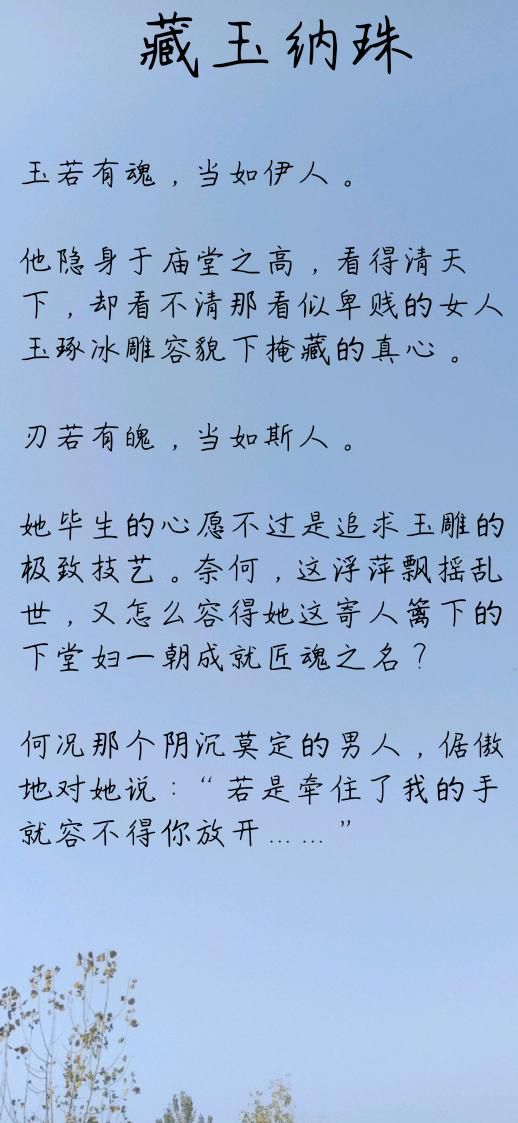 藏玉纳珠
玉若有魂，当如伊人。
他隐身于庙堂之高，看得清天
下，却看不清那看似卑贱的女人
玉琢冰雕容貌下掩藏的真心。
刃若有魄，当如斯人。
她毕生的心愿不过是追求玉雕的
极致技艺。奈何，这浮萍飘摇乱
世，又怎么容得她这寄人篱下的
下堂妇一朝成就匠魂之名？
何况那个阴沉莫定的男人，倨傲
地对她说：“若是牵住了我的手
就容不得你放开……”